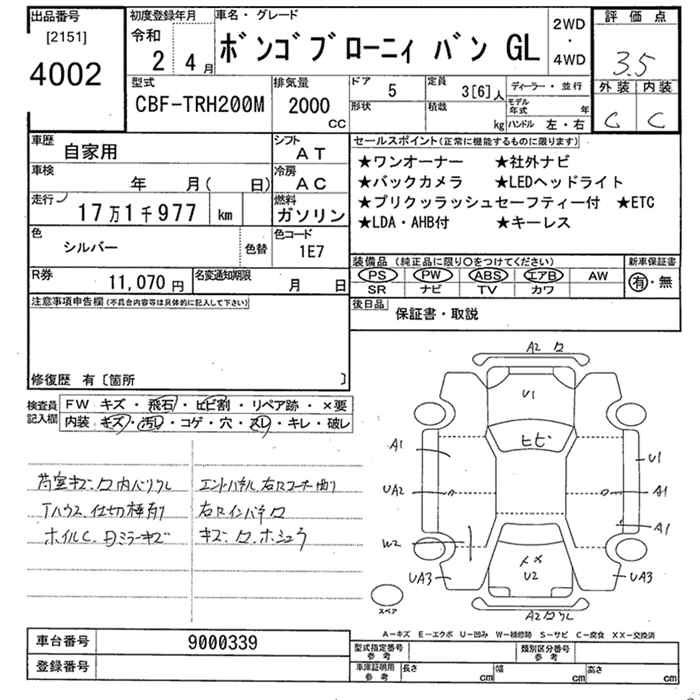 出品番号
[2151]
4002
初度登録年月
令和
2年 4月
車名・グレード
ボンゴブローニィ バン GL
2WD
・
4WD
評価点
3.5
外装 内装
C C
型式
CBF-TRH200M
排気量
2000
CC
ドア
5
定員
3[6]人
ディーラー・並行
形状
積載
kg
モデル
年式
年
ハンドル 左・右
車歴
自家用
シフト
AT
車検
年 月( 日)
冷房
AC
走行
17万1千977 km
燃料
ガソリン
色
シルバー
色替
色コード
1E7
R券
11,070円
名変通知期限
月 日
セールスポイント(正常に機能するものに限ります)
★ワンオーナー ★社外ナビ
★バックカメラ ★LEDヘッドライト
★プリクッラッシュセーフティー付 ★ETC
★LDA・AHB付 ★キーレス
装備品 (純正品に限り○をつけてください)
新車保証書
PS PW ABS エアB AW
SR ナビ TV カワ
有・無
後日品
保証書・取説
注意事項申告欄(不具合内容等は具体的に記入して下さい)
修復歴 有〔箇所 〕
検査員
記入欄
FW キズ・飛石・ヒビ割・リペア跡・×要
内装 キズ・汚レ・コゲ・穴・スレ・キレ・破レ
荷室キズ.ワ内バリワレ
Tハウス.仕切棒有り
ホイルC.日ミラーキズ
エンドパネル.右Rコーナー曲り
右Rインパネワ
キズ.ワ.ホシュウ
A2 ワ
U1
ヒビ
A1
U1
UA2
A1
A1
W2
UA3
××
U2
UA3
A2ワワレ
スペア
A-キズ E-エクボ U-凹み W-補修跡 S-サビ C-腐食 XX-交換済
車台番号
9000339
登録番号
型式指定番号
参考
類別区分番号
参考
車庫証明用
参考
長さ cm
幅 cm
高さ cm